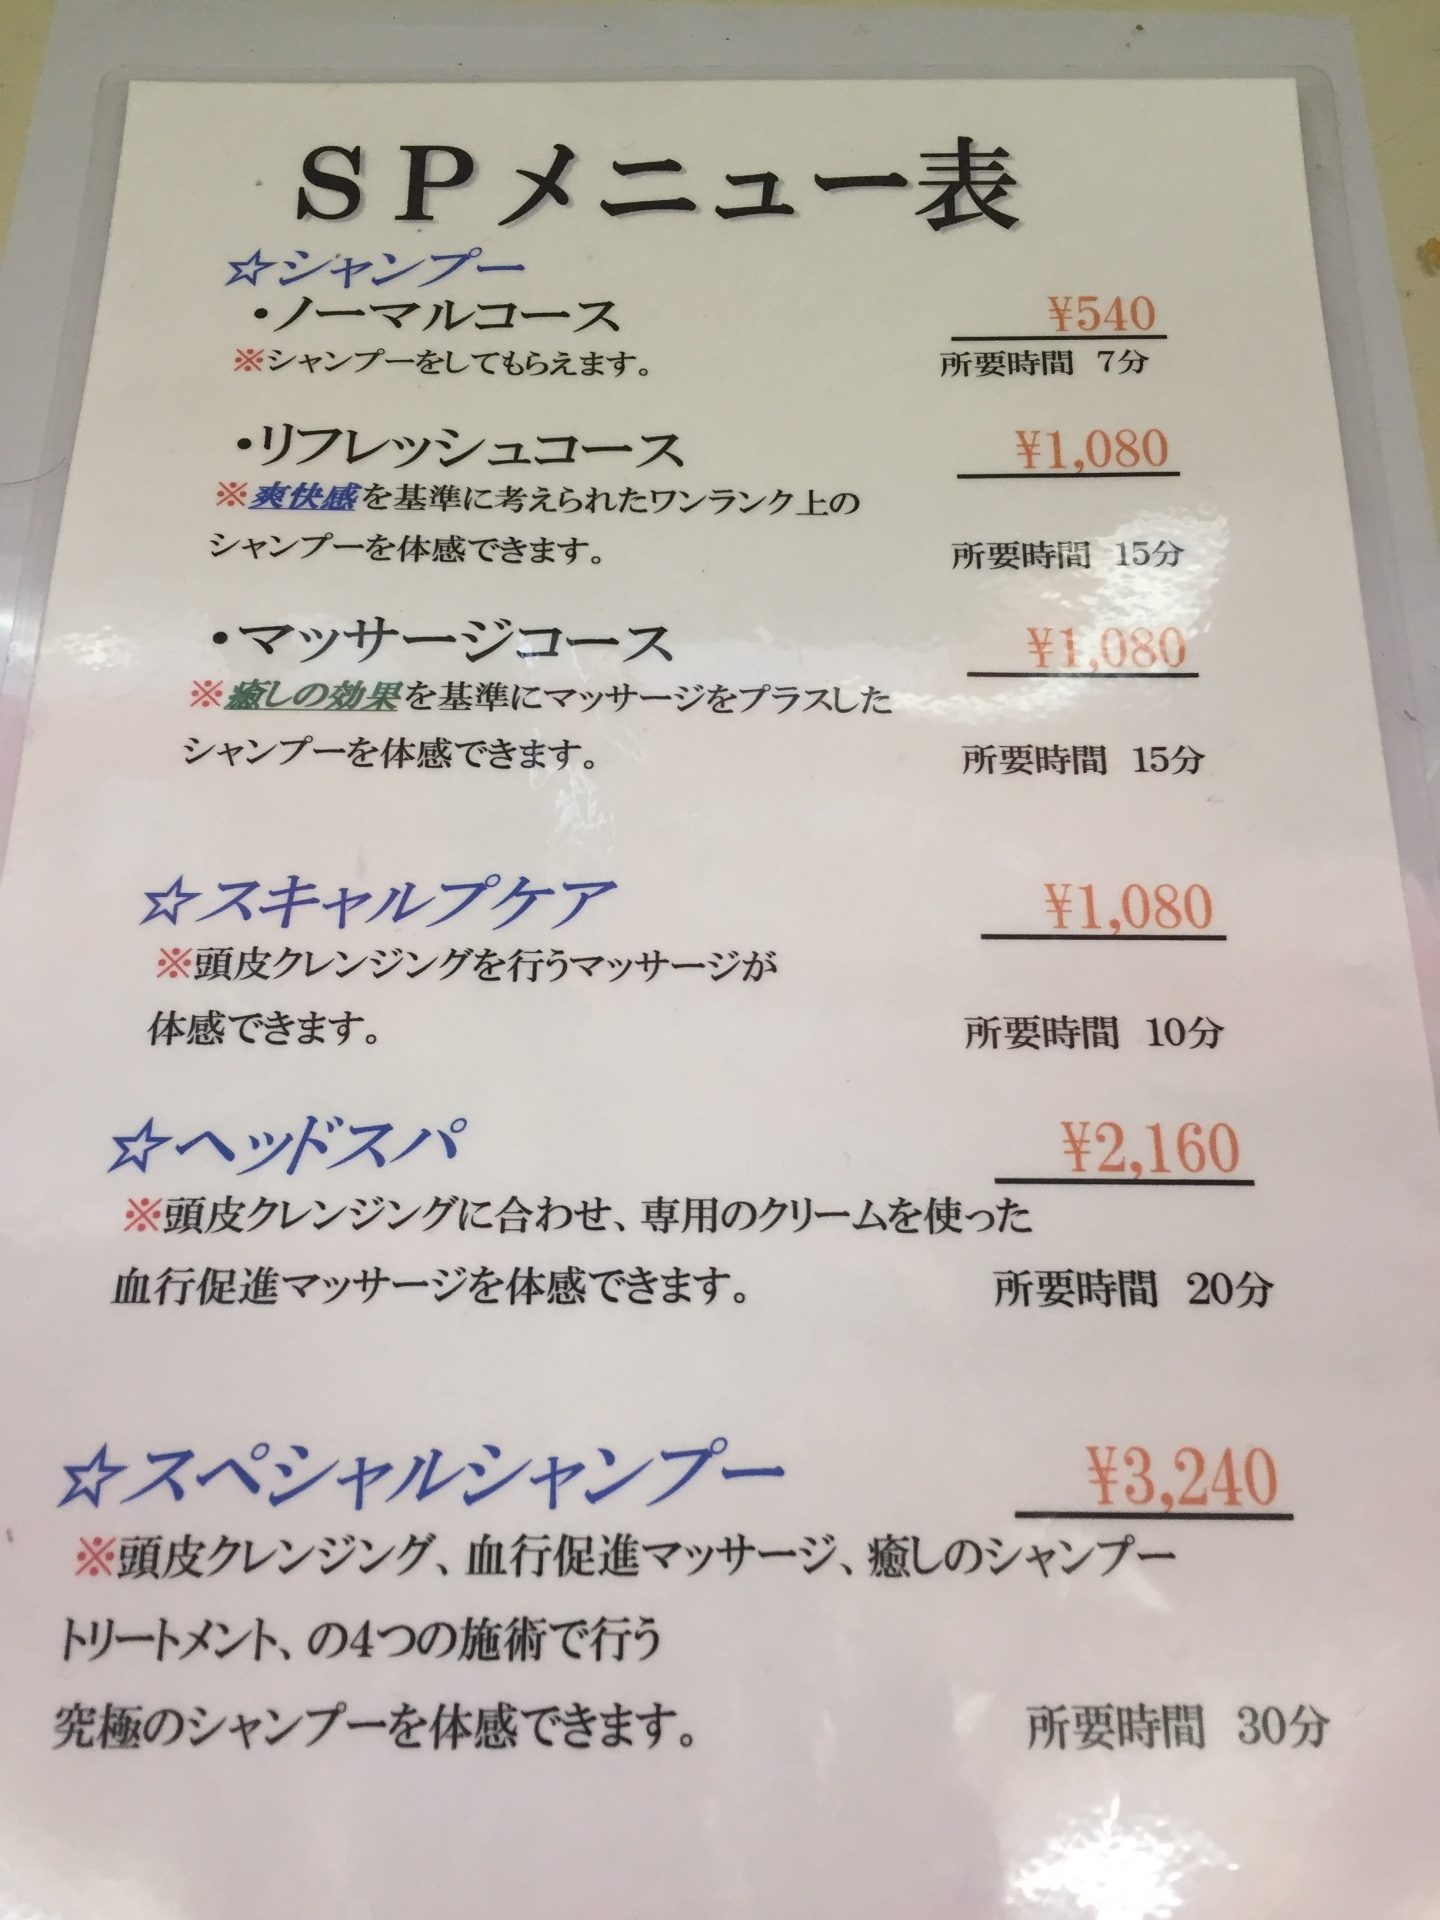 ＳＰメニュー表
☆シャンプー
・ノーマルコース ¥540
※シャンプーをしてもらえます。 所要時間 7分
・リフレッシュコース ¥1,080
※爽快感を基準に考えられたワンランク上の
シャンプーを体感できます。 所要時間 15分
・マッサージコース ¥1,080
※癒しの効果を基準にマッサージをプラスした
シャンプーを体感できます。 所要時間 15分
☆スキャルプケア ¥1,080
※頭皮クレンジングを行うマッサージが
体感できます。 所要時間 10分
☆ヘッドスパ ¥2,160
※頭皮クレンジングに合わせ、専用のクリームを使った
血行促進マッサージを体感できます。 所要時間 20分
☆スペシャルシャンプー ¥3,240
※頭皮クレンジング、血行促進マッサージ、癒しのシャンプー
トリートメント、の4つの施術で行う
究極のシャンプーを体感できます。 所要時間 30分